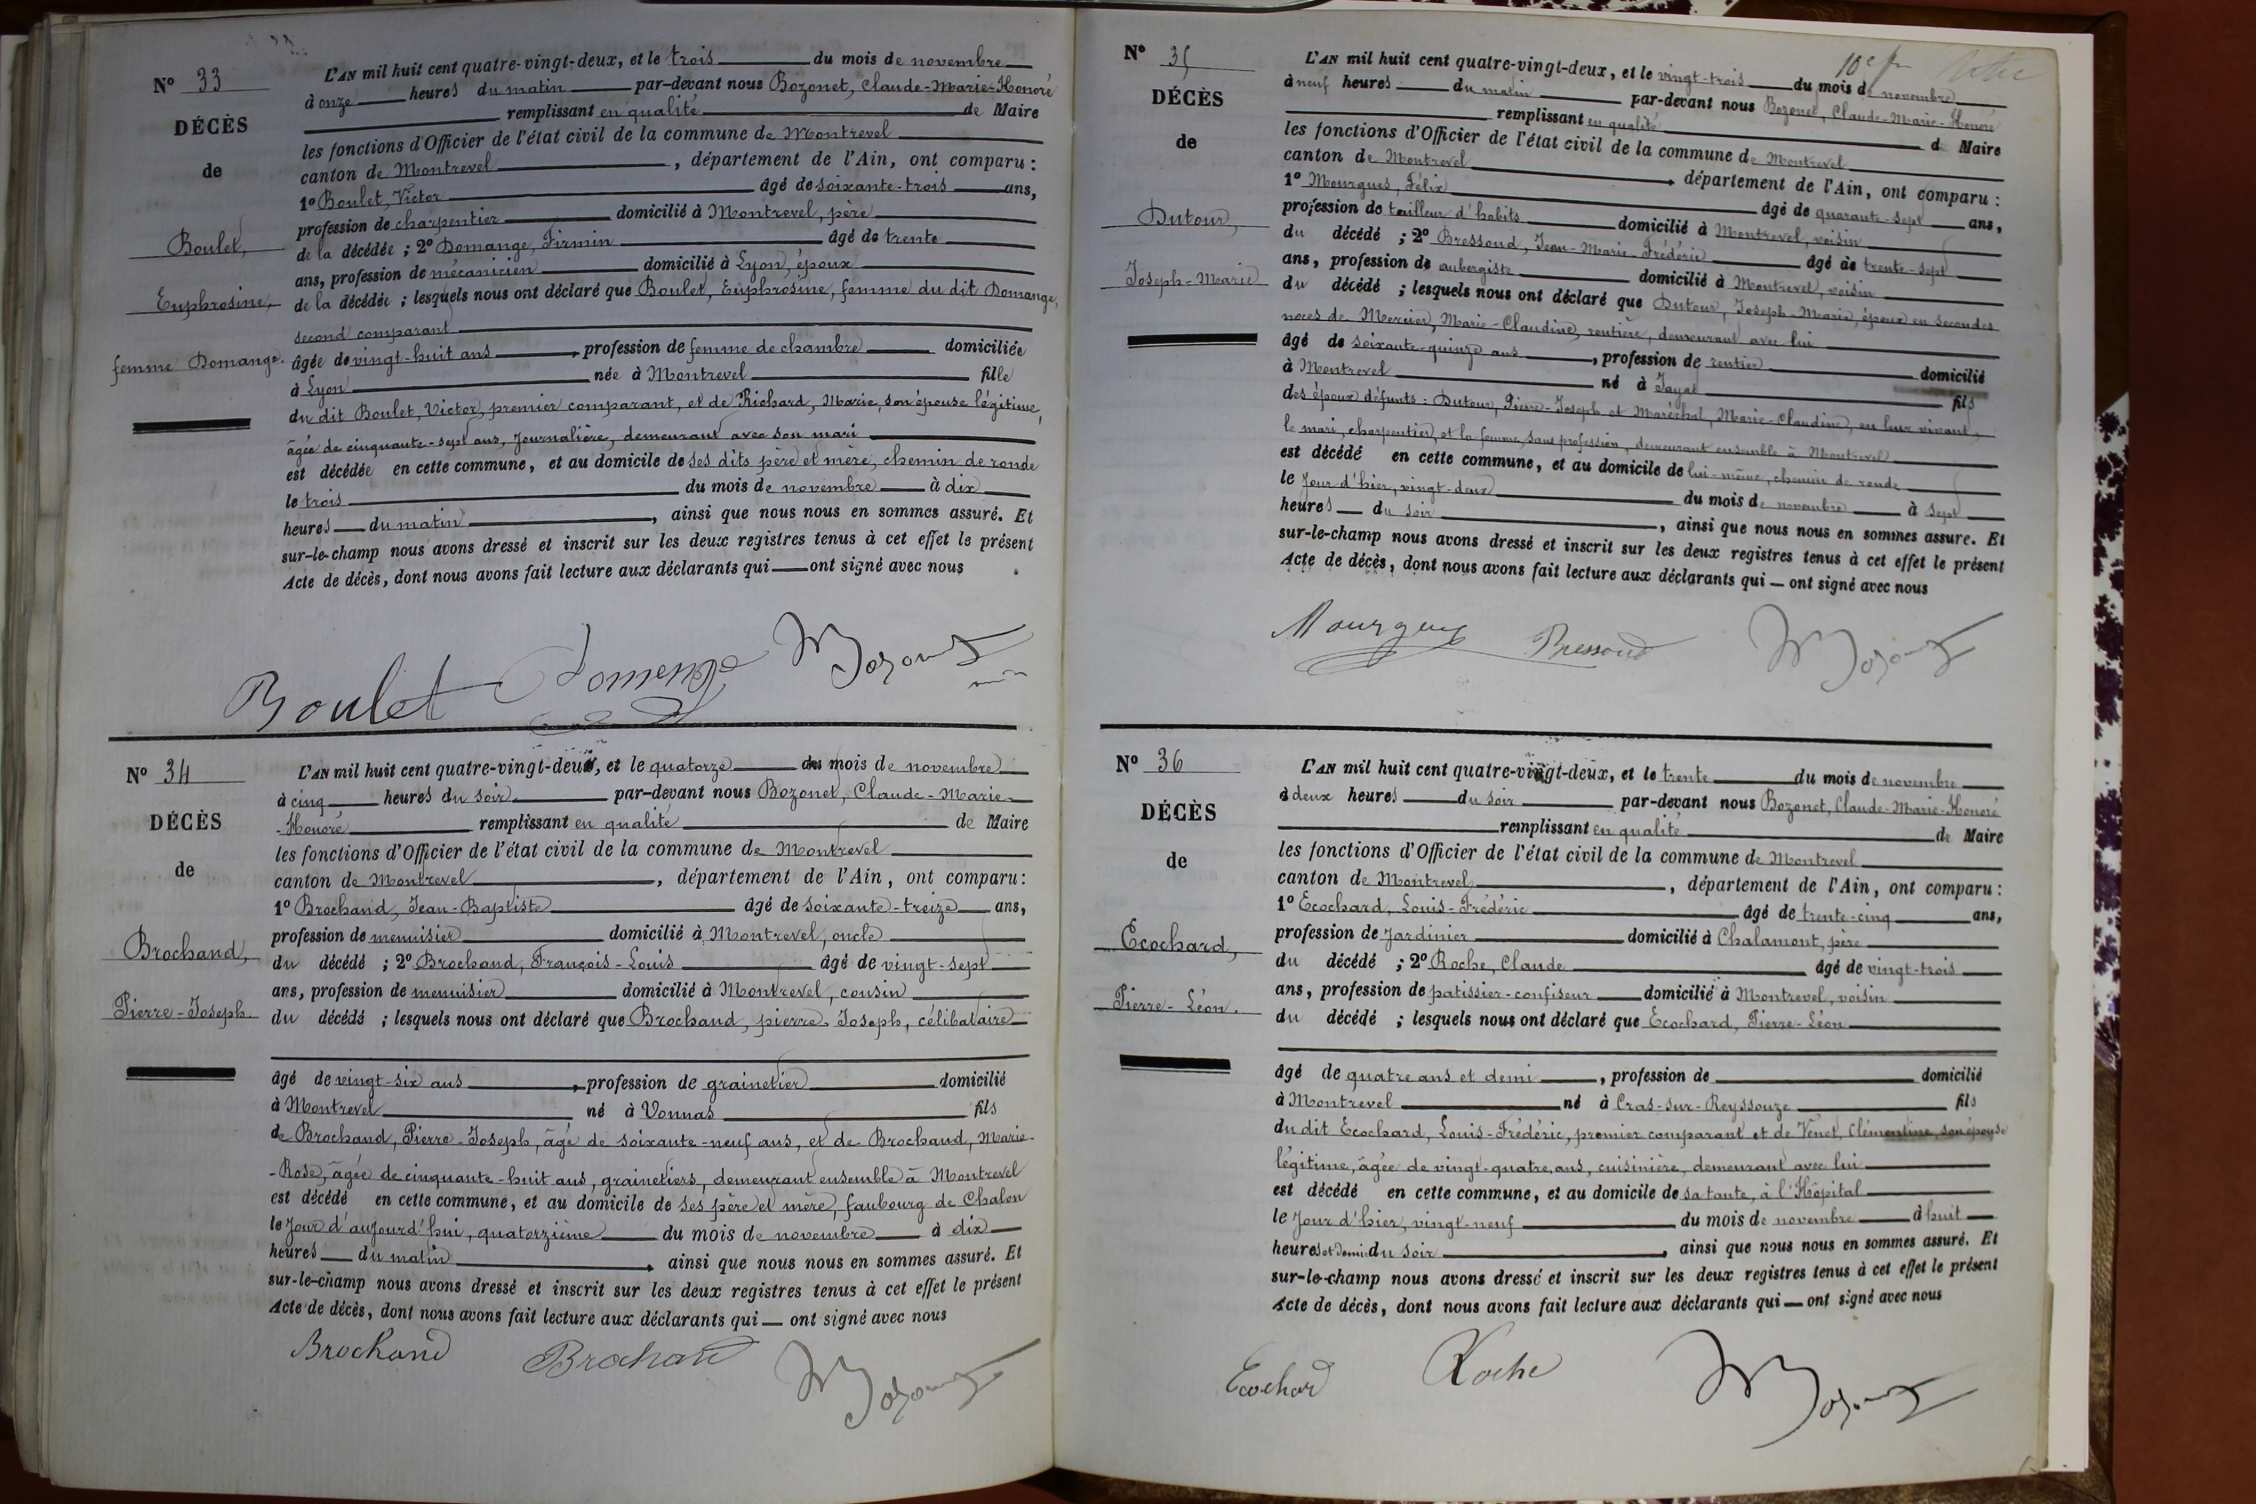 N° 33
DÉCÈS
de
Boulet,
Euphrosine,
femme Domange.
L'AN mil huit cent quatre-vingt-deux, et le trois du mois de novembre
à onze heures du matin par-devant nous Bozonet, Claude-Marie-Honoré
remplissant en qualité de Maire
les fonctions d'Officier de l'état civil de la commune de Montrevel
canton de Montrevel, département de l'Ain, ont comparu :
1° Boulet, Victor âgé de soixante-trois ans,
profession de charpentier domicilié à Montrevel, père
de la décédée ; 2° Domange, Firmin âgé de trente
ans, profession de mécanicien domicilié à Lyon, époux
de la décédée ; lesquels nous ont déclaré que Boulet, Euphrosine, femme du dit Domange,
second comparant
âgée de vingt-huit ans, profession de femme de chambre domiciliée
à Lyon née à Montrevel fille
du dit Boulet, Victor, premier comparant, et de Richard, Marie, son épouse légitime,
âgée de cinquante-sept ans, journalière, demeurant avec son mari
est décédée en cette commune, et au domicile de ses dits père et mère, chemin de ronde
le trois du mois de novembre à dix
heures du matin, ainsi que nous nous en sommes assuré. Et
sur-le-champ nous avons dressé et inscrit sur les deux registres tenus à cet effet le présent
Acte de décès, dont nous avons fait lecture aux déclarants qui ont signé avec nous.
Boulet Domenge Bozonet
N° 34
DÉCÈS
de
Brochand,
Pierre-Joseph.
L'AN mil huit cent quatre-vingt-deux, et le quatorze du mois de novembre
à cinq heures du soir par-devant nous Bozonet, Claude-Marie-
-Honoré remplissant en qualité de Maire
les fonctions d'Officier de l'état civil de la commune de Montrevel
canton de Montrevel, département de l'Ain, ont comparu :
1° Brochand, Jean-Baptiste âgé de soixante-treize ans,
profession de menuisier domicilié à Montrevel, oncle
du décédé ; 2° Brochand, François-Louis âgé de vingt-sept
ans, profession de menuisier domicilié à Montrevel, cousin
du décédé ; lesquels nous ont déclaré que Brochand, pierre-Joseph, célibataire
âgé de vingt-six ans, profession de grainetier domicilié
à Montrevel né à Vonnas fils
de Brochand, Pierre-Joseph, âgé de soixante-neuf ans, et de Brochaud, Marie-
-Rose, âgée de cinquante-huit ans, grainetiers, demeurant ensemble à Montrevel
est décédé en cette commune, et au domicile de ses père et mère, faubourg de Chalon
le jour d'aujourd'hui, quatorzième du mois de novembre à dix
heures du matin, ainsi que nous nous en sommes assuré. Et
sur-le-champ nous avons dressé et inscrit sur les deux registres tenus à cet effet le présent
Acte de décès, dont nous avons fait lecture aux déclarants qui ont signé avec nous
Brochand Brochand Bozonet
N° 35
DÉCÈS
de
Dutour,
Joseph-Marie
L'AN mil huit cent quatre-vingt-deux, et le vingt-trois du mois de novembre
à neuf heures du matin par-devant nous Bozonet, Claude-Marie-Honoré
remplissant en qualité d Maire
les fonctions d'Officier de l'état civil de la commune de Montrevel
canton de Montrevel, département de l'Ain, ont comparu :
1° Mourgues, Félix âgé de quarante-sept ans,
profession de tailleur d'habits domicilié à Montrevel, voisin
du décédé ; 2° Bressoud, Jean-Marie-Frédéric âgé de trente-sept
ans, profession de aubergiste domicilié à Montrevel, voisin
du décédé ; lesquels nous ont déclaré que Dutour, Joseph-Marie, époux en secondes
noces de Mercier, Marie-Claudine, rentière, demeurant avec lui
âgé de soixante-quinze ans, profession de rentier domicilié
à Montrevel né à Jayat fils
des époux défunts : Dutour, Pierre-Joseph et Maréchal, Marie-Claudine, en leur vivant,
le mari, charpentier, et la femme, sans profession, demeurant ensemble à Montrevel
est décédé en cette commune, et au domicile de lui-même, chemin de ronde
le jour d'hier, vingt-deux du mois de novembre à sept
heures du soir, ainsi que nous nous en sommes assuré. Et
sur-le-champ nous avons dressé et inscrit sur les deux registres tenus à cet effet le présent
Acte de décès, dont nous avons fait lecture aux déclarants qui ont signé avec nous
Mourgues Bressoud Bozonet
N° 36
DÉCÈS
de
Ecochard,
Pierre-Léon.
L'AN mil huit cent quatre-vingt-deux, et le trente du mois de novembre
à deux heures du soir par-devant nous Bozonet, Claude-Marie-Honoré
remplissant en qualité de Maire
les fonctions d'Officier de l'état civil de la commune de Montrevel
canton de Montrevel, département de l'Ain, ont comparu :
1° Ecochard, Louis-Frédéric âgé de trente-cinq ans,
profession de jardinier domicilié à Chalamont, père
du décédé ; 2° Roche, Claude âgé de vingt-trois
ans, profession de patissier-confiseur domicilié à Montrevel, voisin
du décédé ; lesquels nous ont déclaré que Ecochard, Pierre-Léon
âgé de quatre ans et demi, profession de domicilié
à Montrevel né à Cras-sur-Reyssouze fils
du dit Ecochard, Louis-Frédéric, premier comparant et de Venet, Clémentine, son épouse
légitime, âgée de vingt-quatre ans, cuisinière, demeurant avec lui
est décédé en cette commune, et au domicile de sa tante, à l'Hôpital
le jour d'hier, vingt-neuf du mois de novembre à huit
heures et demi du soir, ainsi que nous nous en sommes assuré. Et
sur-le-champ nous avons dressé et inscrit sur les deux registres tenus à cet effet le présent
Acte de décès, dont nous avons fait lecture aux déclarants qui ont signé avec nous
Ecochard Roche Bozonet